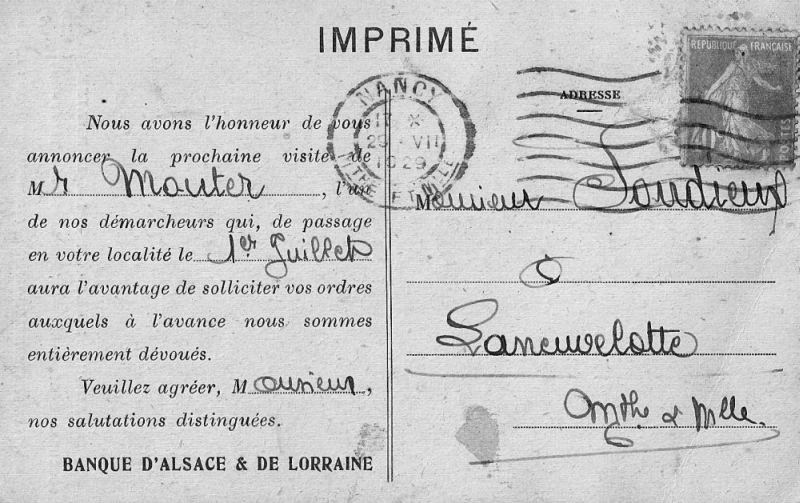 IMPRIMÉ
Nous avons l'honneur de vous
annoncer la prochaine visite de
Mr Mouter, l'un
de nos démarcheurs qui, de passage
en votre localité le 1er Juillet
aura l'avantage de solliciter vos ordres
auxquels à l'avance nous sommes
entièrement dévoués.
Veuillez agréer, Monsieur,
nos salutations distinguées.
BANQUE D'ALSACE & DE LORRAINE
NANCY
1929
RÉPUBLIQUE FRANÇAISE
ADRESSE
Monsieur
à
Laneuvelotte
Mthe & Mlle.